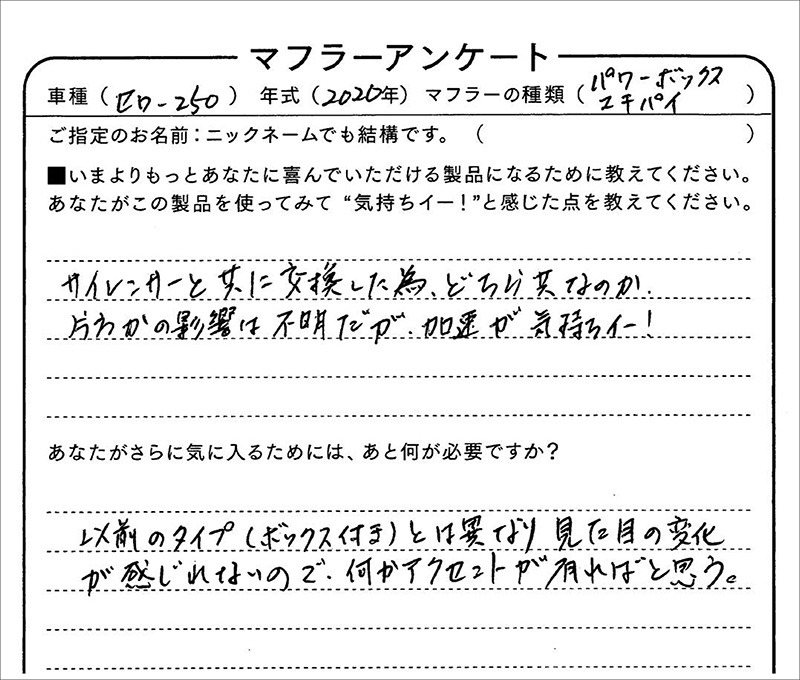 マフラーアンケート
車種（セロー250） 年式（2020年） マフラーの種類（パワーボックス
エキパイ ）
ご指定のお名前：ニックネームでも結構です。（ ）
■いまよりもっとあなたに喜んでいただける製品になるために教えてください。
あなたがこの製品を使ってみて“気持ちイー！”と感じた点を教えてください。
サイレンサーと共に交換した為、どちら共なのか、
片方かの影響は不明だが、加速が気持ちイー！
あなたがさらに気に入るためには、あと何が必要ですか？
以前のタイプ（ボックス付き）とは異なり見た目の変化
が感じれないので、何かアクセントが有ればと思う。